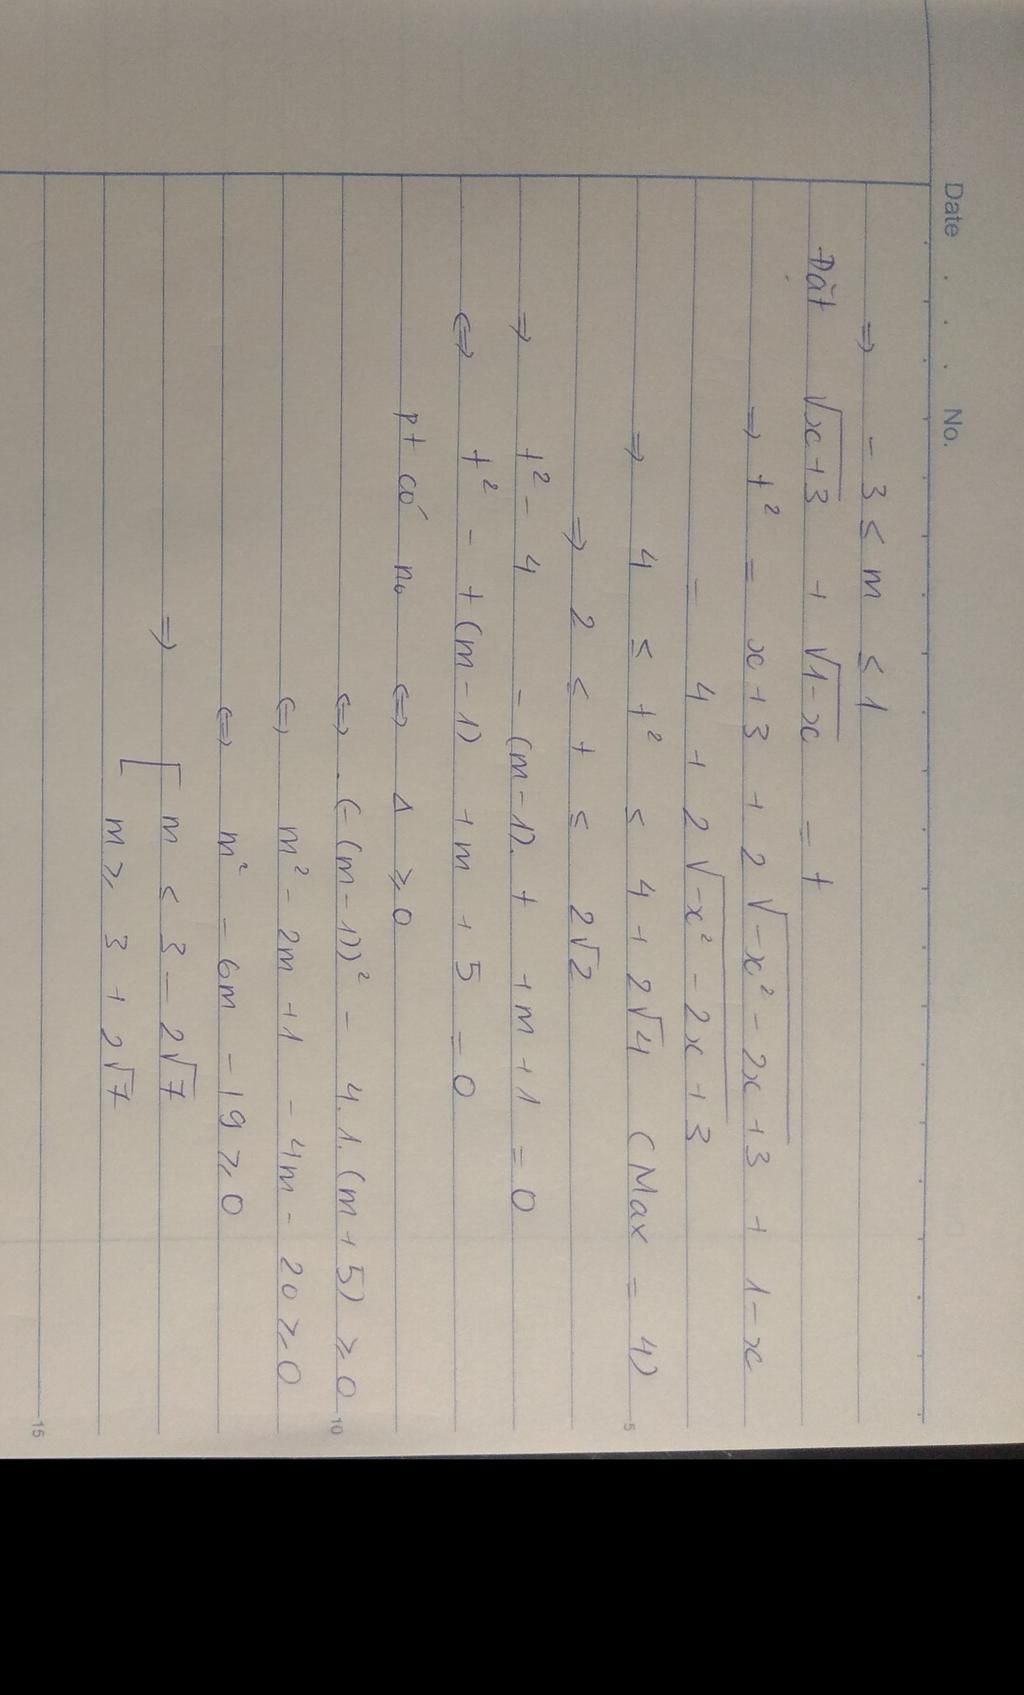 Date No.
⇒ - 3 ≤ m ≤ 1
Đặt √(x+3) + √(1-x) = t
⇒ t² = x+3 + 2√(-x² - 2x +3) + 1-x
= 4 + 2√(-x² - 2x +3)
⇒ 4 ≤ t² ≤ 4 + 2√4 (Max = 4)
⇒ 2 ≤ t ≤ 2√2
⇒ t² - 4 - (m-1).t +m +1 = 0
⇔ t² - t(m-1) +m +5 = 0
pt có n₀ ⇔ Δ ≥ 0
⇔ (-(m-1))² - 4.1.(m+5) ≥ 0
⇔ m² - 2m +1 - 4m - 20 ≥ 0
⇔ m² - 6m - 19 ≥ 0
⇒ [ m ≤ 3 - 2√7
m ≥ 3 + 2√7
5
10
15